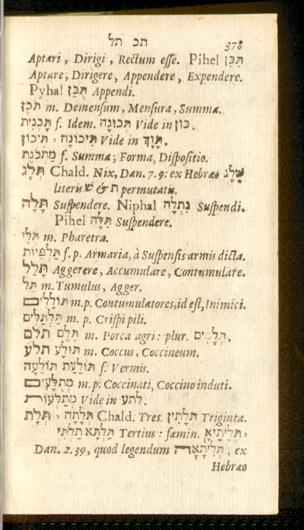 תכ תל 378
Aptari, Dirigi, Rectum esse. Pihel תִּכֵּן
Aptare, Dirigere, Appendere, Expendere.
Pyhal תֻּכַּן Appendi.
תֹּכֶן m. Demensum, Mensura, Summa.
תָּכְנִית f. Idem. תְּכוּנָה Vide in כּוּן.
תִּיכוֹן, תִּיכוֹנָה Vide in תָּוֶךְ.
מַתְכֹּנֶת f. Summa; Forma, Dispositio.
תְּלַג Chald. Nix, Dan. 7. 9: ex Hebræo שֶׁלֶג
literis ש & ת permutatis.
תָּלָה Suspendere. Niphal נִתְלָה Suspendi.
Pihel תִּלָּה Suspendere.
תְּלִי m. Pharetra.
תַּלְפִּיּוֹת f. p. Armaria, à Suspensis armis dicta.
תָּלַל Aggerere, Accumulare, Contumulare.
תֵּל m. Tumulus, Agger.
תּוֹלָלִים m. p. Contumulatores, id est, Inimici.
תַּלְתַּלִּים m. p. Crispi pili.
תלם תֶּלֶם m. Porca agri: plur. תְּלָמִים.
תלע תּוֹלָע m. Coccus, Coccineum.
תּוֹלַעַת תּוֹלֵעָה f. Vermis.
מְתֻלָּעִים m. p: Coccinati, Coccino induti.
מְתַלְּעוֹת Vide in לתע.
תְּלָת, תְּלָתָה Chald. Tres. תְּלָתִין Triginta.
תַּלְתָּא תַלְתִּי Tertius: fæmin. תְּלִיתָיָא,
Dan. 2. 39, quod legendum תְּלִיתָאָה, ex
Hebræo